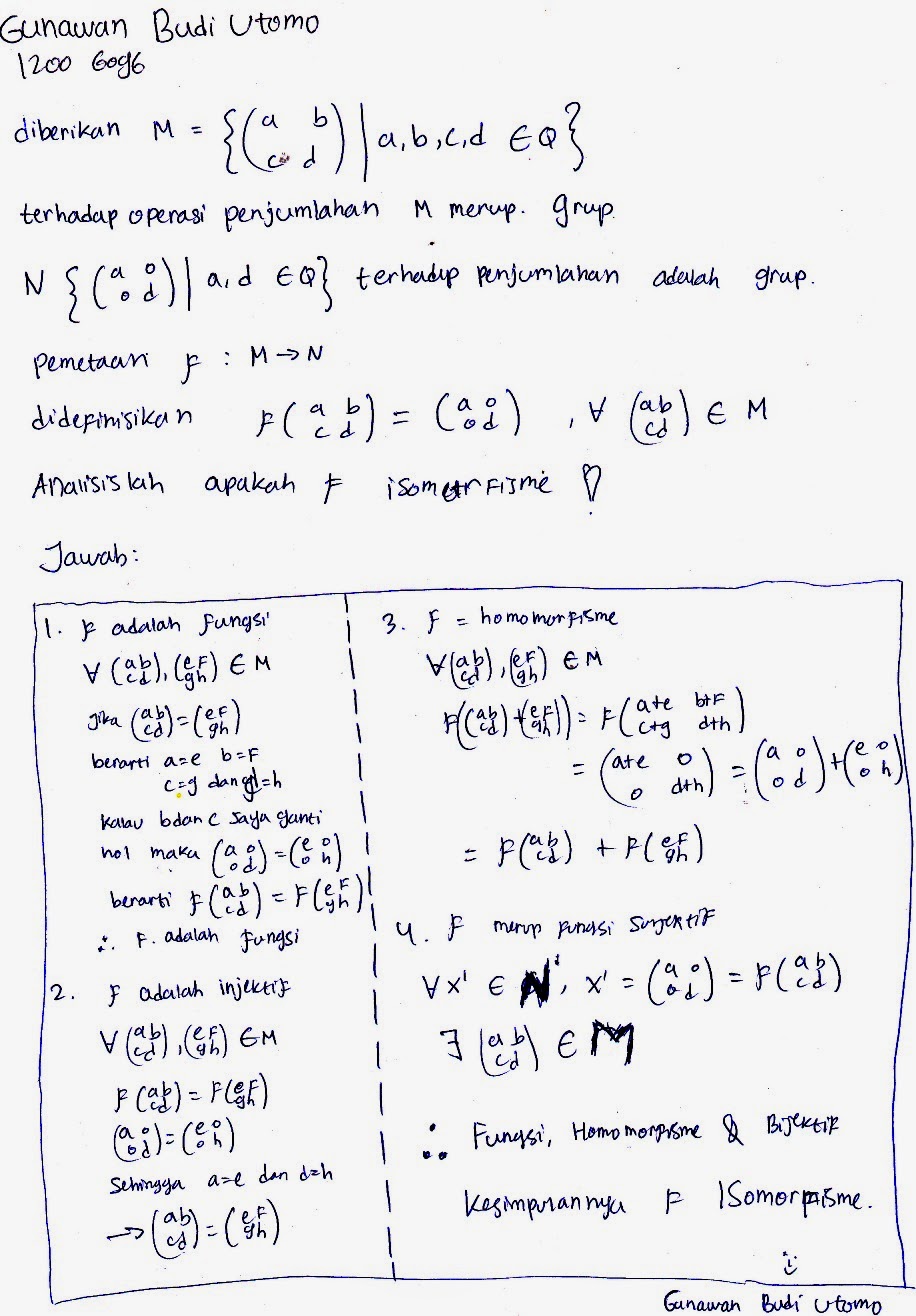 Gunawan Budi Utomo
1200 6096
diberikan M = {(a b c d) | a,b,c,d ∈ Q}
terhadap operasi penjumlahan M merup. grup
N {(a 0 0 d) | a,d ∈ Q} terhadap penjumlahan adalah grup.
pemetaan F : M → N
didefinisikan F(a b c d) = (a 0 0 d) , ∀ (a b c d) ∈ M
Analisislah apakah F
Jawab:
1. F adalah fungsi
∀ (a b c d), (e F g h) ∈ M
Jika (a b c d) = (e F g h)
berarti a=e b=F
c=g dan d=h
kalau b dan c saya ganti
nol maka (a 0 0 d) = (e 0 0 h)
berarti F(a b c d) = F(e F g h)
∴ F. adalah fungsi
2. F adalah injektif
∀ (a b c d), (e F g h) ∈ M
F(a b c d) = F(e F g h)
(a 0 0 d) = (e 0 0 h)
Sehingga a=e dan d=h
→ (a b c d) = (e F g h)
3. F = homomorfisme
∀ (a b c d), (e F g h) ∈ M
F((a b c d) + (e F g h)) = F(a+e b+F c+g d+h)
= (a+e 0 0 d+h) = (a 0 0 d) + (e 0 0 h)
= F(a b c d) + F(e F g h)
4. F merup fungsi Surjektif
∀ x' ∈ N', x' = (a 0 0 d) = F(a b c d)
∃ (a b c d) ∈ M
∴ Fungsi, Homomorfisme & Bijektif
Kesimpulannya F ISomorfisme.
Gunawan Budi Utomo